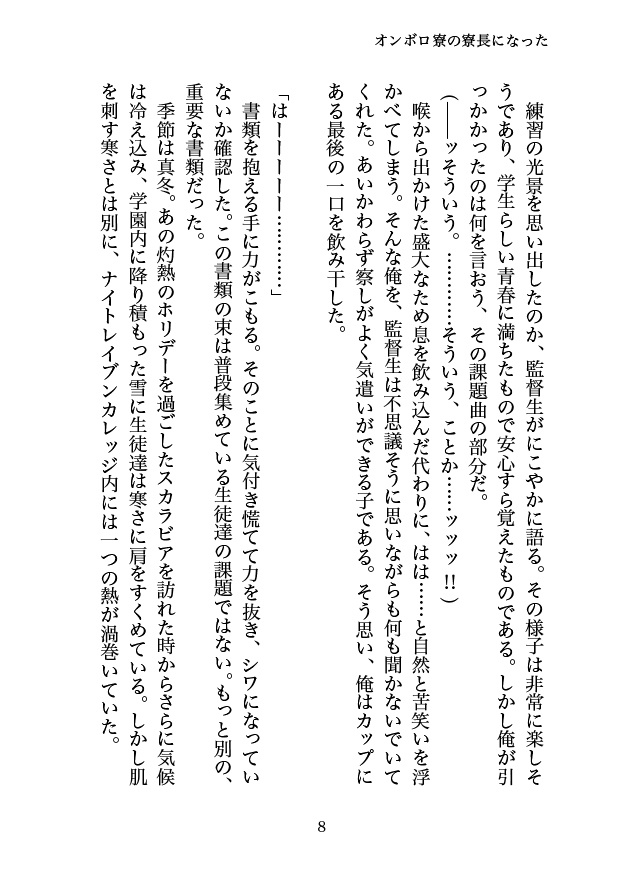 オンボロ寮の寮長になった
練習の光景を思い出したのか、監督生がにこやかに語る。その様子は非常に楽しそ
うであり、学生らしい青春に満ちたもので安心すら覚えたものである。しかし俺が引
っかかったのは何を言おう、その課題曲の部分だ。
(――ッそういう。…………そういう、ことか……ッッッ!!)
喉から出かけた盛大なため息を飲み込んだ代わりに、はは……と自然と苦笑いを浮
かべてしまう。そんな俺を、監督生は不思議そうに思いながらも何も聞かないでいて
くれた。あいかわらず察しがよく気遣いができる子である。そう思い、俺はカップに
ある最後の一口を飲み干した。
「はーーーーー…………」
書類を抱える手に力がこもる。そのことに気付き慌てて力を抜き、シワになってい
ないか確認した。この書類の束は普段集めている生徒達の課題ではない。もっと別の、
重要な書類だった。
季節は真冬。あの灼熱のホリデーを過ごしたスカラビアを訪れた時からさらに気候
は冷え込み、学園内に降り積もった雪に生徒達は寒さに肩をすくめている。しかし肌
を刺す寒さとは別に、ナイトレイブンカレッジ内には一つの熱が渦巻いていた。
8